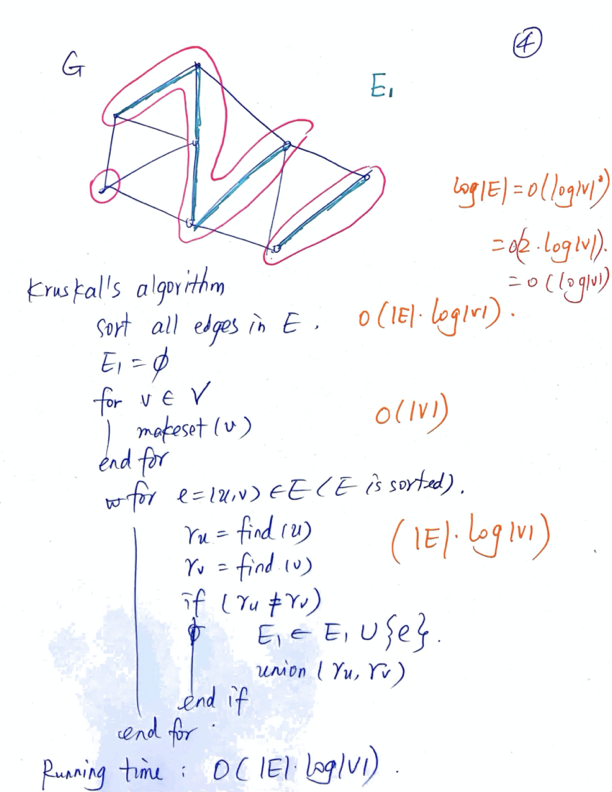 ④
G
E₁
log|E| = O(log|V|²)
= O(2·log|V|).
= O(log|V|)
Kruskall's algorithm
sort all edges in E. O(|E|·log|V|).
E₁ = ϕ
for v ∈ V O(|V|)
makeset(v)
end for
for e=(u,v) ∈ E (E is sorted).
ru = find(u) (|E|·log|V|)
rv = find(v)
if (ru ≠ rv)
E₁ ← E₁ ∪ {e}.
union(ru, rv)
end if
end for.
Running time: O(|E|·log|V|).